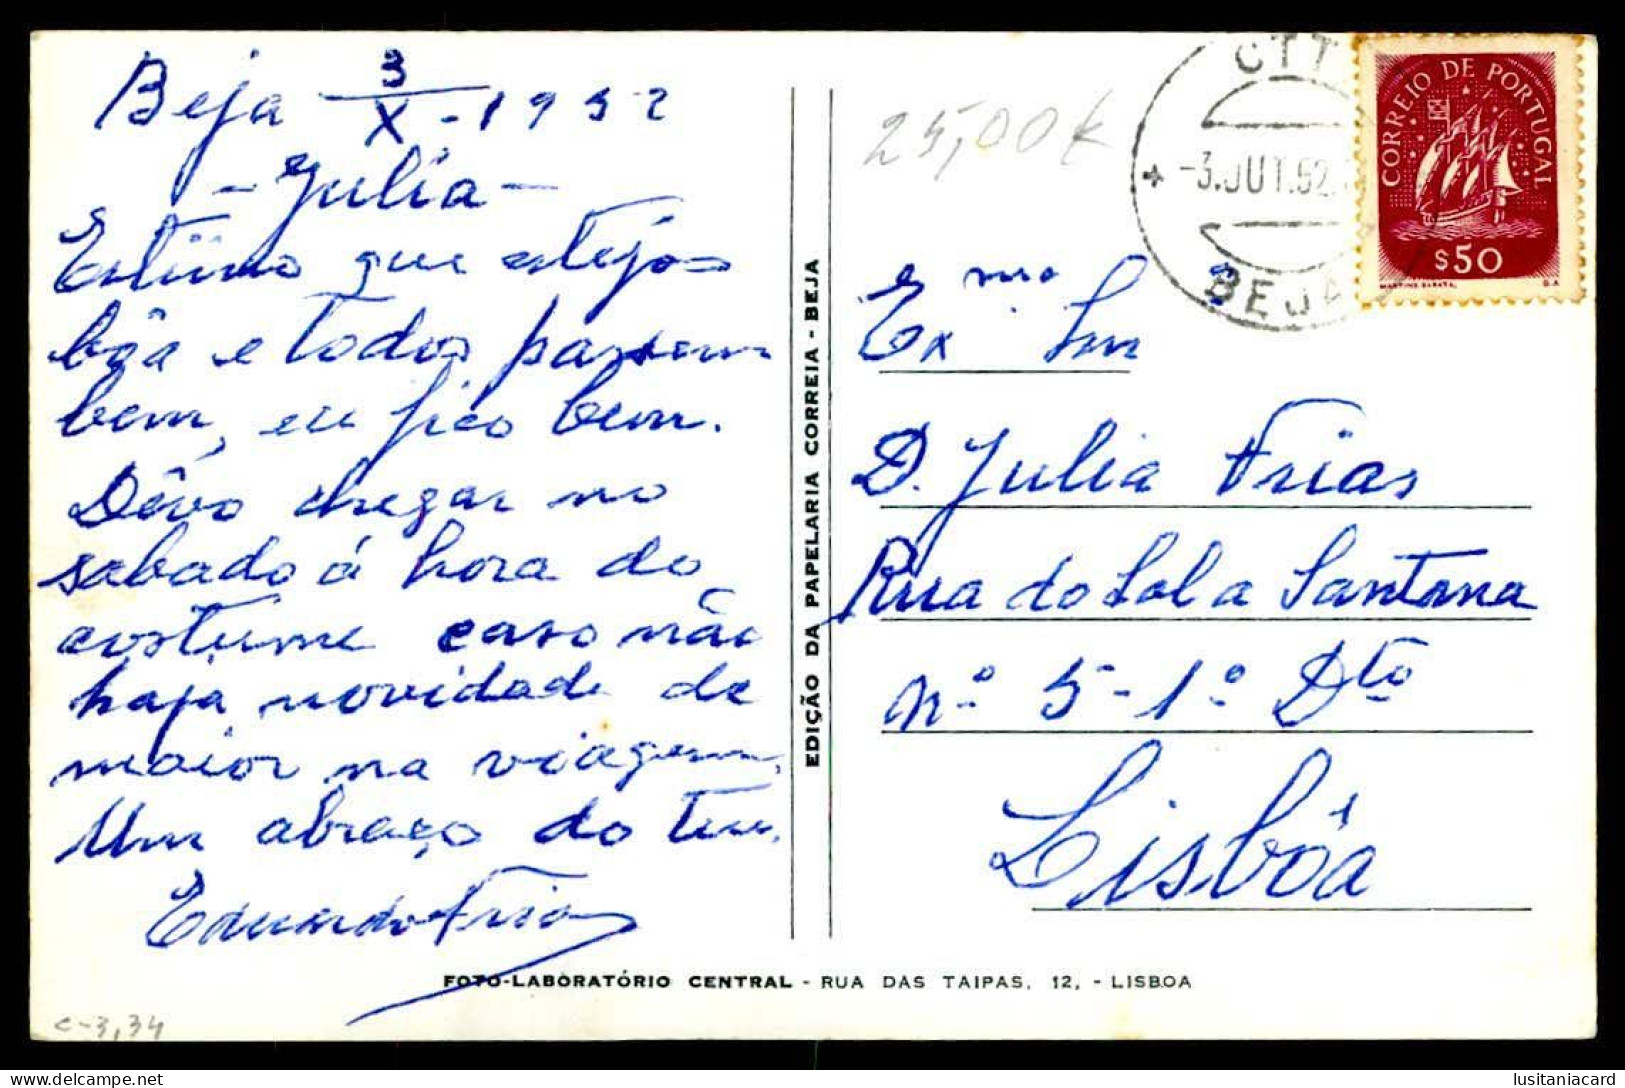 Beja 3/X - 1952
- Julia -
Estimo que estejas
bôa e todos passem
bem, eu fico bem.
Dêvo chegar no
sabado á hora do
costume caso não
haja novidade de
maior na viagem.
Um abraço do teu.
Eduardo Frias
c-3,34
EDIÇÃO DA PAPELARIA CORREIA - BEJA
FOTO-LABORATÓRIO CENTRAL - RUA DAS TAIPAS, 12, - LISBOA
25,00€
CTT
-3.OUT.52
BEJA
CORREIO DE PORTUGAL
$50
MARTINS BARATA.
Exma Snra
D. Julia Frias
Rua do Sol a Santana
nº 5-1º Dto
Lisbôa
lusitaniacard